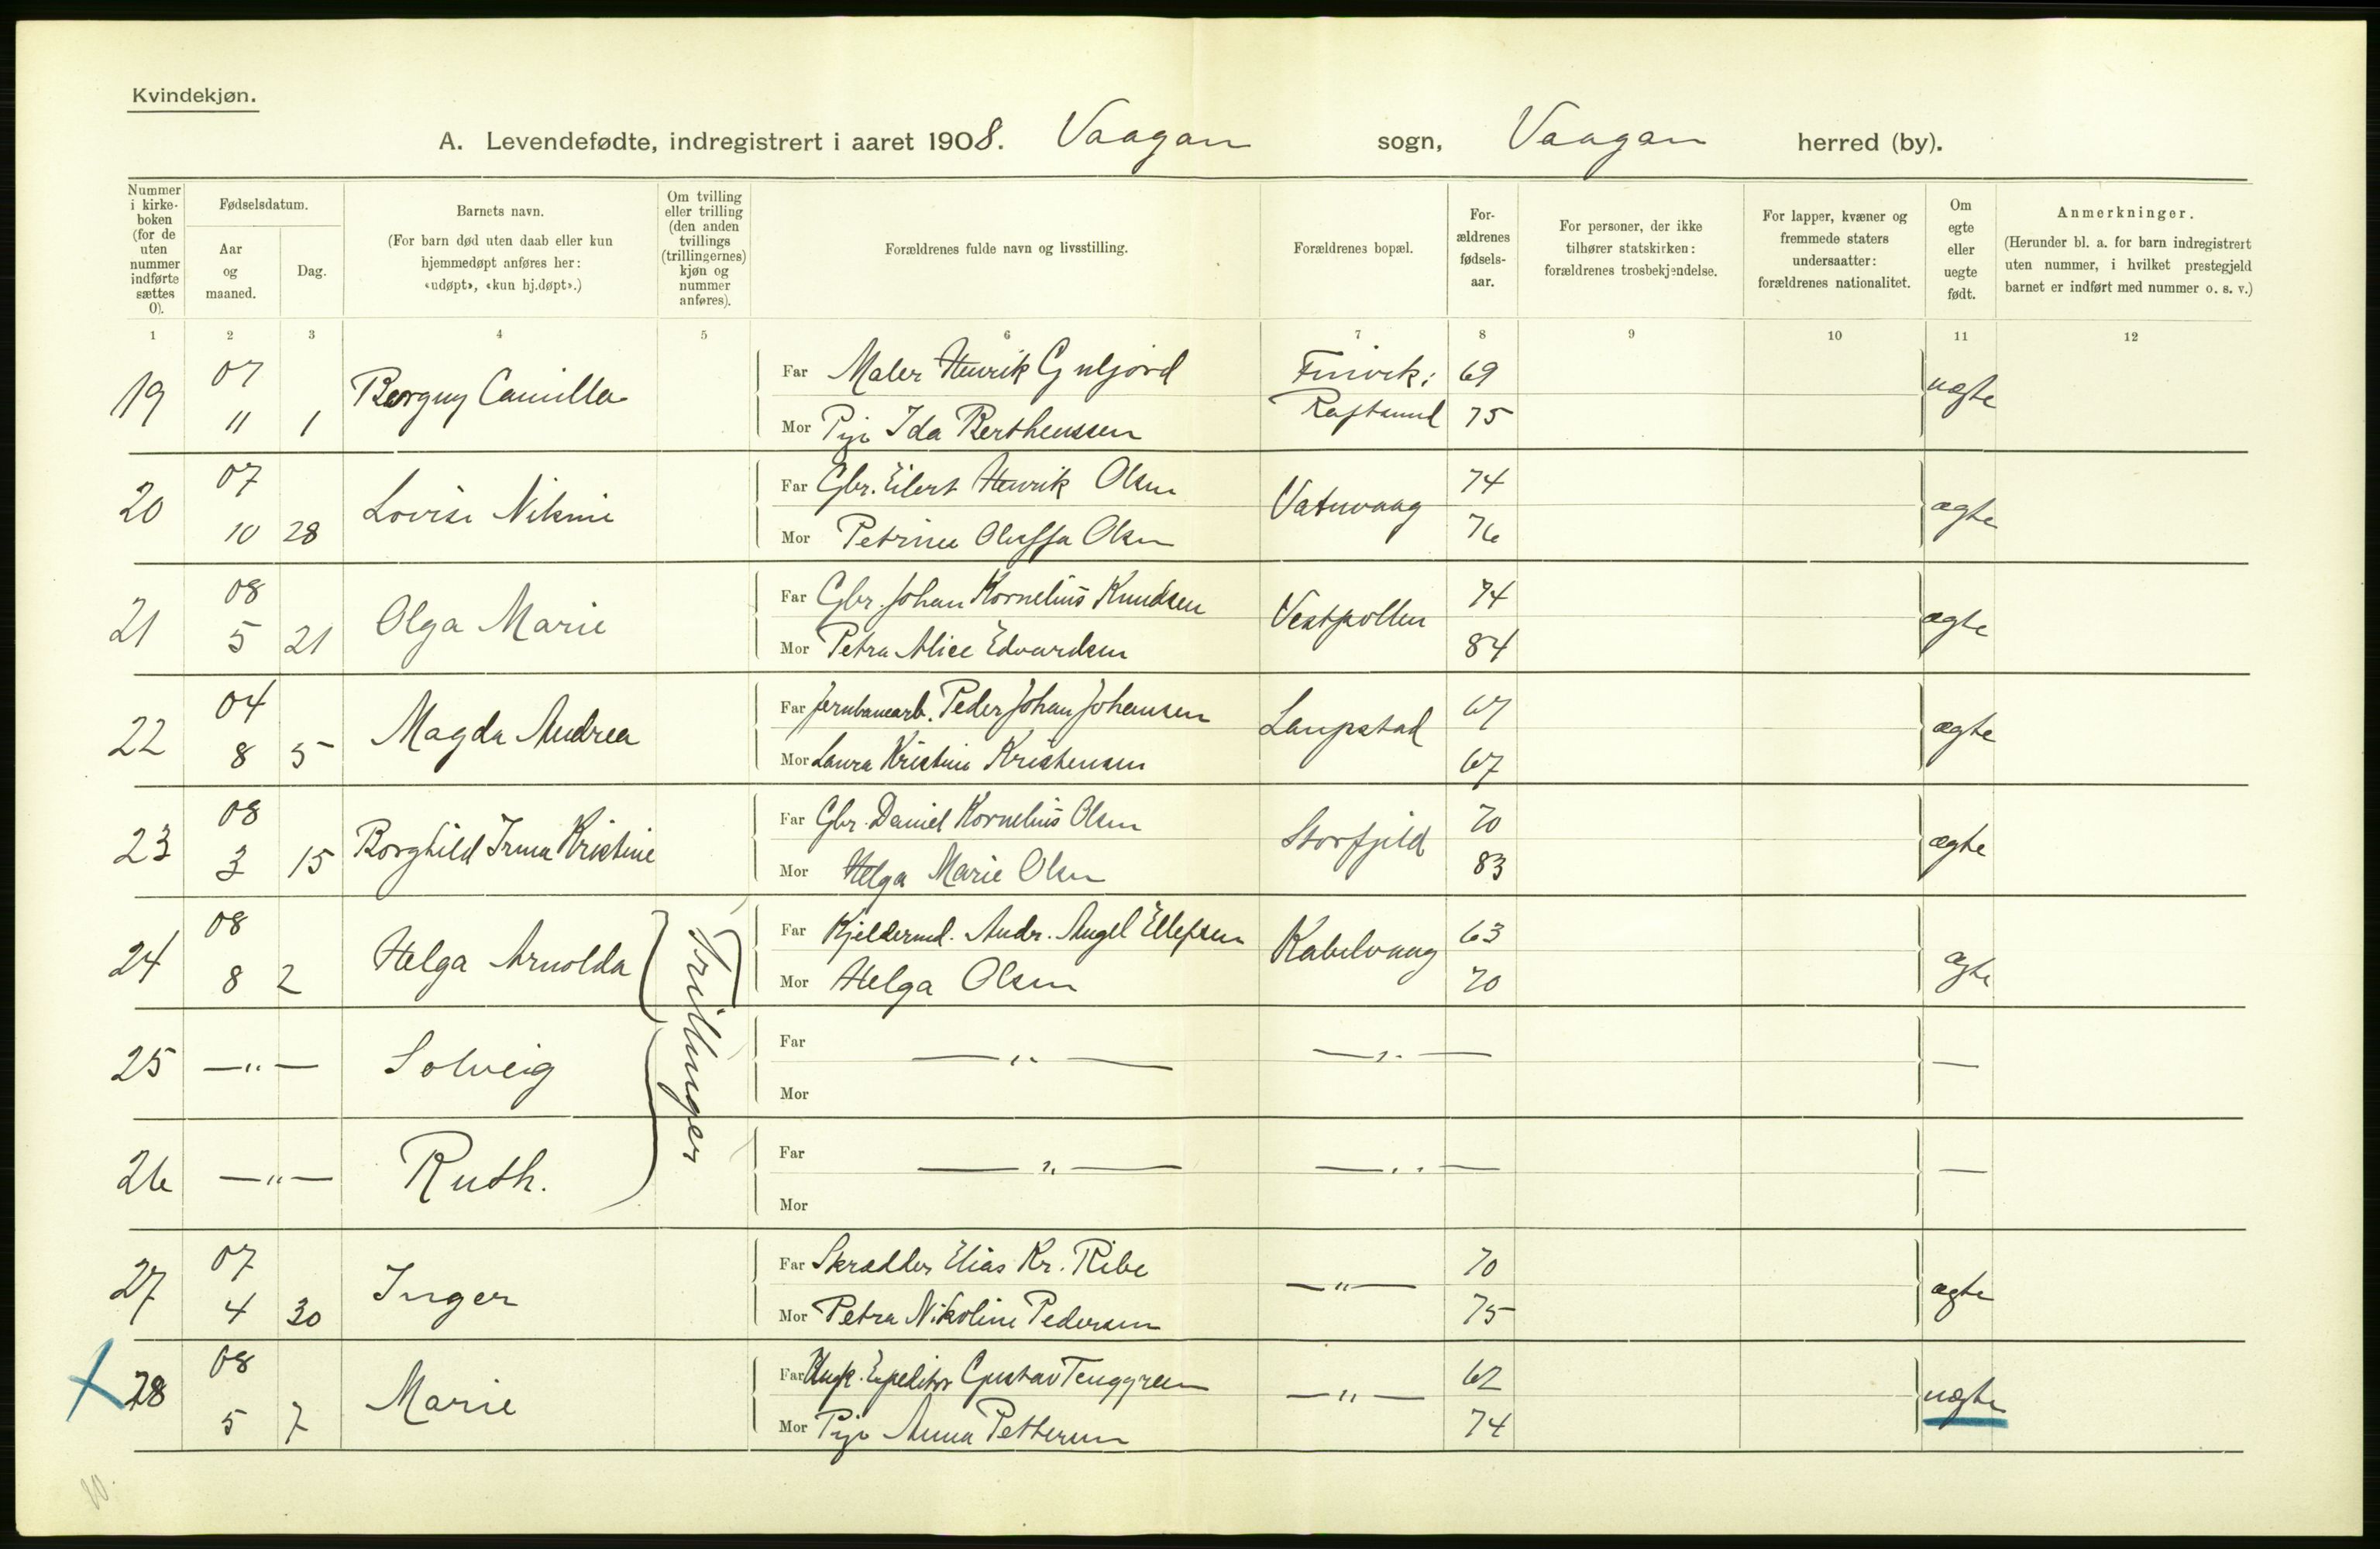 Kvindekjøn.
A. Levendefødte, indregistrert i aaret 1908. Vaagan sogn, Vaagan herred (by).
Nummer i kirke-boken (for de uten nummer indførte sættes 0).
Fødselsdatum.
Aar og maaned.
Dag.
Barnets navn.
(For barn død uten daab eller kun hjemmedøpt anføres her: «udøpt», «kun hj.døpt».)
Om tvilling eller trilling (den anden tvillings (trillingernes) kjøn og nummer anføres).
Forældrenes fulde navn og livsstilling.
Forældrenes bopæl.
For-ældrenes fødsels-aar.
For personer, der ikke tilhører statskirken: forældrenes trosbekjendelse.
For lapper, kvæner og fremmede staters undersaatter: forældrenes nationalitet.
Om egte eller uegte født.
Anmerkninger.
(Herunder bl. a. for barn indregistrert uten nummer, i hvilket prestegjeld barnet er indført med nummer o. s. v.)
1 2 3 4 5 6 7 8 9 10 11 12
19 07 11 1 Borguy Camilla
Far Maler Henrik Guljord 69
Mor Pige Ida Bertheussen Raftsund 75 uægte
20 07 10 28 Lovise
Far Gbr. Eilert Henrik Olsen Vatnvaag 74
Mor Petrine Oluffa Olsen 76 ægte
21 08 5 21 Olga Marie
Far Gbr. Johan Kornelius Knudsen Vestpollen 74
Mor Petra Alice Edvardsen 84 ægte
22 04 8 5 Magda Andrea
Far Jernbanearb. Peder Johan Johansen Laupstad 67
Mor Laura Kristine Kristensen 67 ægte
23 08 3 15 Borghild Irma Kristine
Far Gbr. Daniel Kornelius Olsen Storfjeld 70
Mor Helga Marie Olsen 83 ægte
24 08 8 2 Helga Arnolda Trillinger
Far Kjeldermd. Andr. Angel Ellefsen Kabelvaag 63
Mor Helga Olsen 70 ægte
25 —"— Solveig
Far —"— —"— —
Mor
26 —"— Ruth.
Far —"— —"— —
Mor
27 07 4 30 Inger
Far Skrædder Elias Kr. Ribe —"— 70
Mor Petra Nikoline Pedersen 75 ægte
X 28 08 5 7 Marie
Far Ungk. Expeditør Gustav Tenggren —"— 62
Mor Pige Anna Pettersen 74 uægte
10.